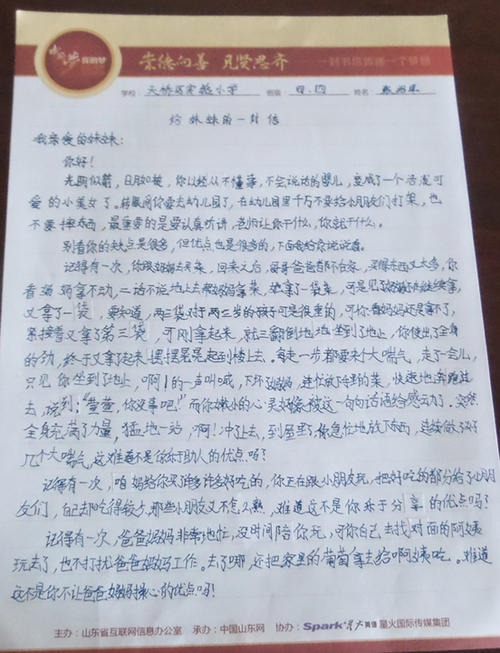 你的梦 崇德向善 见贤思齐 一封书信传递一个梦想
学校: 天桥区实验小学 班级: 四.四 姓名:
给妹妹的一封信
我亲爱的妹妹:
你好!
光阴似箭,日月如梭,你已经从不懂事,不会说话的婴儿,变成了一个活泼可
爱的小美女了。转眼间你要去幼儿园了,在幼儿园里千万不要给小朋友们打架,也
不要摔东西,最重要的是要认真听讲,老师让你干什么,你就干什么。
别看你的缺点是很多,但优点也是很多的,下面我给你说说看。
记得有一次,你跟妈妈去买菜,回来之后,哥哥爸爸都不在家,买得东西又太多,你
看妈妈拿不动,二话不说地上去帮妈妈拿菜,拿了一袋菜,可是见了妈妈还继续拿,
又拿了一袋,要知道,两三袋对于两三岁的孩子可是很重的,可你看妈妈还是拿不了,
紧接着又拿了第三袋,可刚拿起来,就三翻倒地地坐到了地上,你使出了全身
的劲,终于又拿了起来,摆摆晃晃走到楼上去,每走一步都要来个大喘气,走了一会儿,
只见你坐到了地上,啊!的一声叫喊,下坏了妈妈,连忙放下手里的菜,快速地奔跑过
去,说到:“萱萱,你没事吧!”而你嫩小的心灵好像被这一句句话语给感动了,突然
全身充满了力量,猛地一站,啊!冲了上去,到屋里,像急忙地放下东西,连续做了好
几个大喘气,这难道不是你乐于助人的优点吗?
记得有一次,咱妈给你买许多许多好吃的,你正在跟小朋友玩,把好吃的都分给了小朋
友们,自己却吃得较少,那些小朋友又不怎么熟,难道这不是你乐于分享的优点吗?
记得有一次,爸爸妈妈非常地忙,没时间陪你玩,可你自己去找对面的阿姨
玩去了,也不打扰爸爸妈妈工作。去了那,还把家里的葡萄拿去给啊姨吃。难道
这不是你不让爸爸妈妈操心的优点吗!
主办:山东省互联网信息办公室 承办:中国山东网 协办:Spark 星火英语 星火国际传媒集团